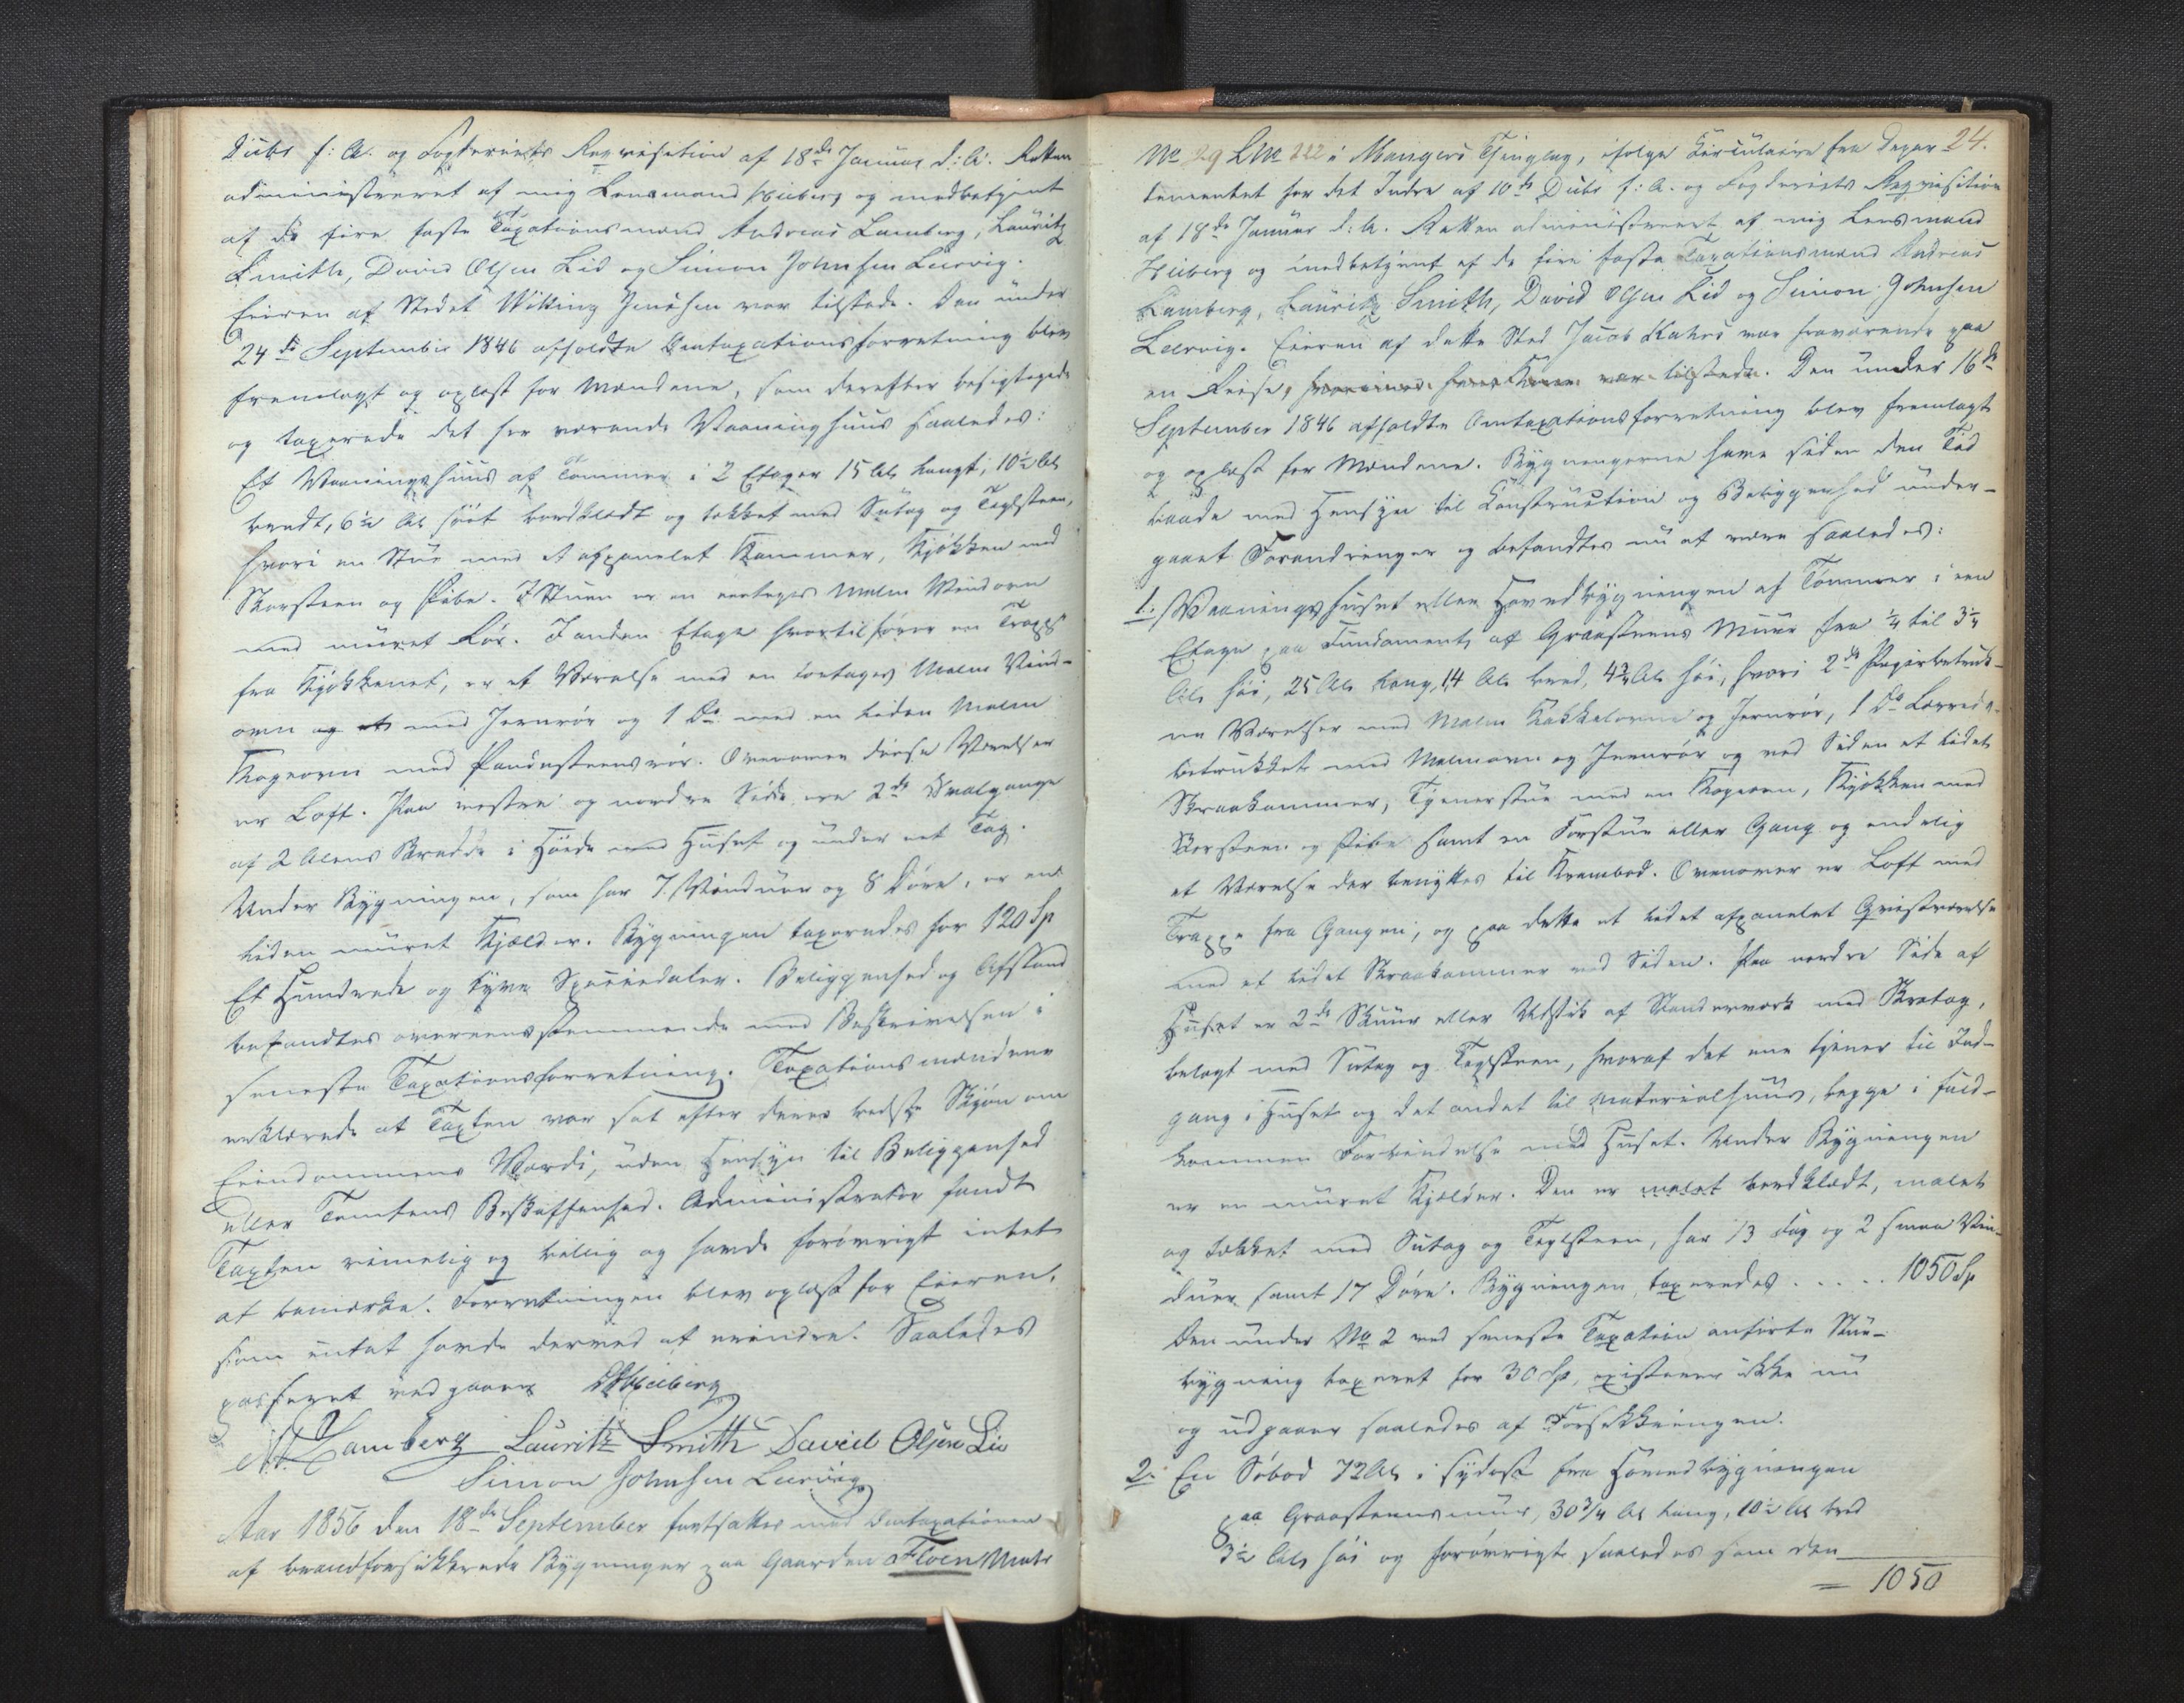 Dcbr f: A. og Fogderiets Requisition af 18de Januar d: A. Retten
administreret af mig Lensmand Heiberg og medbetjent
af de fire faste Taxationsmænd Andreas Lamberg, Lauritz
Smith, David Olsen Lid og Simon Johnsen Leervig.
Eieren af Stedet Wiking Jensen var tilstede. Den under
24de September 1846 afholdte Omtaxationsforretning blev
fremlagt og oplæst for Mændene, som derefter besigtigede
og taxerede det her værende Vaaningshuus saaledes:
Et Vaaningshuus af Tømmer i 2 Etager 15 Al. langt, 10½ Al.
bredt, 6½ Al. høit bordklædt og tækket med Sutag og Teglsteen,
hvori en Stue med et afpanelet Kammer, Kjøkken med
Skorsteen og Pibe. I Stuen er en eetages Malm Vindovn
med muret Rør. I anden Etage hvortil fører en Trappe
fra Kjøkkenet, er et Værelse med en toetages Malm Vind-
ovn og et med Jernrør og 1 Do med en liden Malm
Kogeovn med Pandesteensrør. Ovenover disse Værelser
er Loft. Paa vestre og nordre Side ere 2de Svalgange
af 2 Alens Bredde i Høide med Huset og under eet Tag.
Under Bygningen, som har 7 Vinduer og 8 Døre, er en
liden muret Kjælder. Bygningen taxeredes for 120 Sp
Et Hundrede og tyve Speciedaler. Beliggenhed og Afstand
befandtes overeensstemmende med Beskrivelsen i
seneste Taxationsforretning. Taxationsmændene
erklærede at Taxten var sat efter deres bedste Skjøn om
Eiendommens Værdi, uden Hensyn til Beliggenhed
eller Tomtens Beskaffenhed. Administrator fandt
Taxten rimelig og billig og havde forøvrigt intet
at bemærke. Forretningen blev oplæst for Eieren,
som intet havde derved at erindre. Saaledes
passeret vedgaaes Heiberg
A. Lamberg Lauritz Smith David Olsen Lie
Simon Johnsen Leervig
Aar 1856 den 18de September fortsattes med Omtaxationen
af brandforsikkrede Bygninger paa Gaarden Floen Matr
No 29 LNo 222 i Mangers Thinglag, ifølge Circulaire fra Depar 24.
tementet for det Indre af 10de Dcbr f: A. og Fogderiets Requisition
af 18de Januar d: A. Retten administreret af mig Lensmand
Heiberg og medbetjent af de fire faste Taxationsmænd Andreas
Lamberg, Lauritz Smith, David Olsen Lid og Simon Johnsen
Leervig. Eieren af dette Sted Jacob Kahrs var fraværende paa
en Reise, hvorimod hans Kone var tilstede. Den under 16de
September 1846 afholdte Omtaxationsforretning blev fremlagt
og oplæst for Mændene. Bygningerne have siden den Tid
baade med Hensyn til Construction og Beliggenhed under-
gaaet Forandringer og befandtes nu at være saaledes:
1. Vaaningshuset eller Hovedbygningen af Tømmer i een
Etage paa Fundament af Graasteens Muur fra ¼ til 3¼
Al. høi, 25 Al. lang, 14 Al. bred, 4¾ Al. høi, hvori 2de Papirbetruk-
ne Værelser med Malm Kakkelovne og Jernrør, 1 Do Lærreds-
betrukket med Malmovn og Jernrør og ved Siden et lidet
Skraakammer, Tjenerstue med en Kogeovn, Kjøkken med
Skorsteen og Pibe samt en Forstue eller Gang og endelig
et Værelse der benyttes til Krambod. Ovenover er Loft med
Trappe fra Gangen, og paa dette et lidet afpanelet Qvistværelse
med et lidet Skraakammer ved Siden. Paa nordre Side af
Huset er 2de Skuur eller Udstik af Standerværk med Skretag,
belagt med Sutag og Teglsteen, hvoraf det ene tjener til Ind-
gang i Huset og det andet til Materialhuus, begge i fuld-
kommen Forbindelse med Huset. Under Bygningen
er en muret Kjælder. Den er malet bordklædt, malet
og tækket med Sutag og Teglsteen, har 13 Fag og 2 smaa Vin-
duer samt 17 Døre. Bygningen taxeredes . . . . . 1050 Sp
Den under No 2 ved seneste Taxation anførte Stue-
bygning taxeret for 30 Sp, existerer ikke nu
og udgaaer saaledes af Forsikkringen.
2. En Søbod 72 Al. i sydost fra Hovedbygningen
paa Graasteensmuur, 30¾ Al. lang, 10½ Al. bred
3½ Al. høi og forøvrigt saaledes som den
= 1050